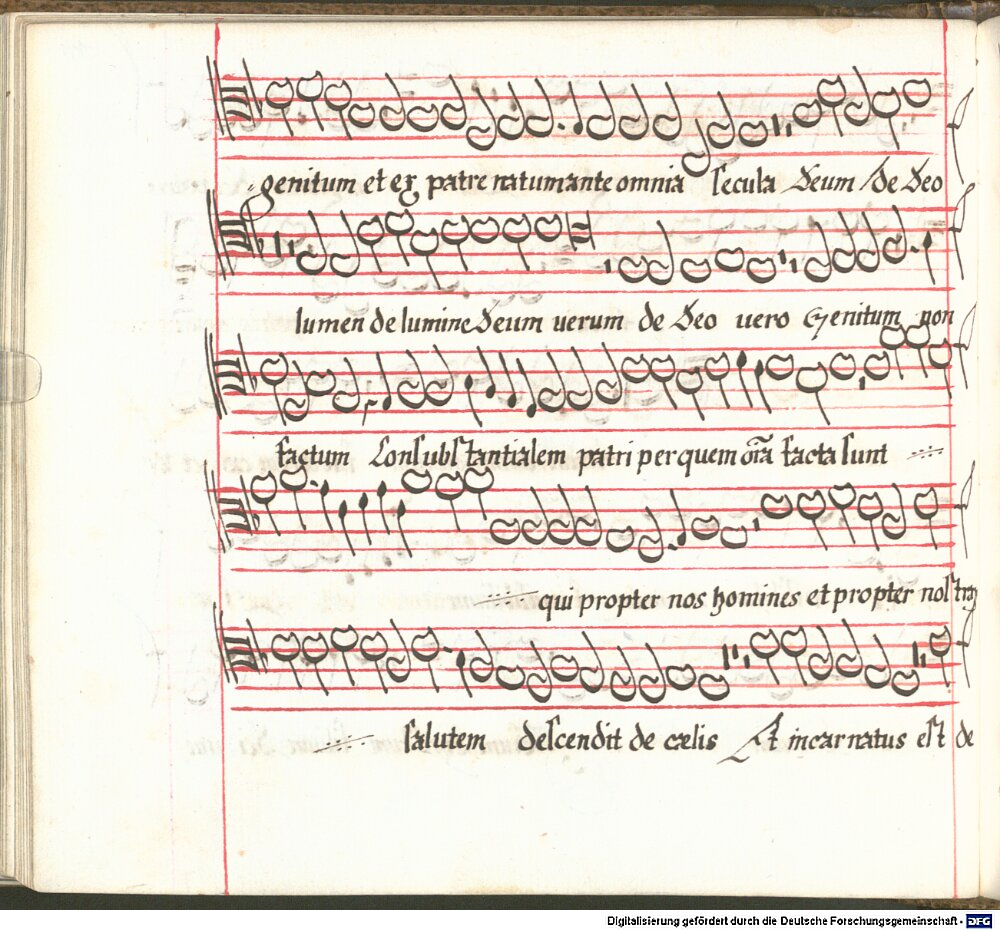 genitum et ex patre natum ante omnia secula Deum de Deo
lumen de lumine Deum uerum de Deo uero Genitum non
factum Consubstantialem patri per quem oīa facta sunt
qui propter nos homines et propter nostraȝ
salutem descendit de cælis Et incarnatus est de
Digitalisierung gefördert durch die Deutsche Forschungsgemeinschaft - DFG